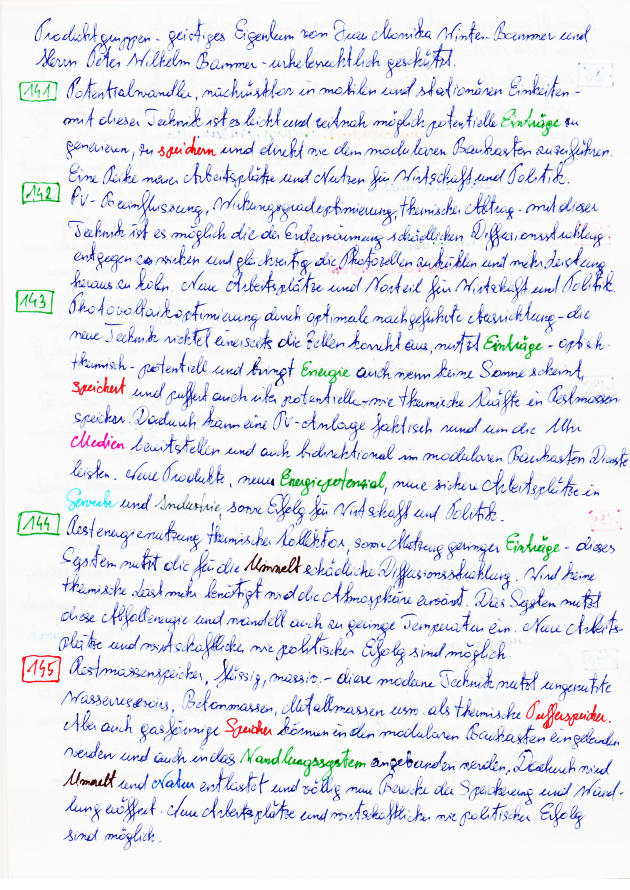 Produktgruppen - geistiges Eigentum von Frau Monika Winter-Bammer und
Herrn Peter Wilhelm Bammer - urheberrechtlich geschützt.
141 Potentialwandler, nachrüstbar in mobilen und stationären Einheiten -
mit dieser Technik ist es leicht und zeitnah möglich potentielle Einträge zu
generieren, zu speichern und direkt wie dem modularen Baukasten zuzuführen.
Eine Reihe neuer Arbeitsplätze und Nutzen für Wirtschaft und Politik.
142 PV-Beeinflussung, Wirkungsgradoptimierung, thermischer Abtrag - mit dieser
Technik ist es möglich die der Erderwärmung schädlichen Diffusionsstrahlung
entgegen zu wirken und gleichzeitig die Photozellen zu kühlen und mehr Leistung
heraus zu holen. Neue Arbeitsplätze und Vorteil für Wirtschaft und Politik
143 Photovoltaikoptimierung durch optimale nachgeführte Ausrichtung - die
neue Technik richtet einerseits die Zellen korrekt aus, nutzt Einträge - optisch -
thermisch - potentiell und bringt Energie auch wenn keine Sonne scheint,
speichert und puffert auch über potentielle - wie thermische Kräfte in Restmassen
speicher. Dadurch kann eine PV-Anlage faktisch rund um die Uhr
Medien bereitstellen und auch bidirektional im modularen Baukasten Dienste
leisten. Neue Produkte, neues Energiepotenzial, neue sichere Arbeitsplätze in
Gewerbe und Industrie, sowie Erfolg für Wirtschaft und Politik.
144 Restenergienutzung thermischer Kollektor, sowie Nutzung geringer Einträge - dieses
System nutzt die für die Umwelt schädliche Diffusionsstrahlung. Wird keine
thermische Last mehr benötigt wird die Atmosphäre erwärmt. Das System nutzt
diese Abfallenergie und wandelt auch zu geringe Temperaturen ein. Neue Arbeits-
plätze und wirtschaftlicher wie politischer Erfolg sind möglich
145 Restmassenspeicher, flüssig, massiv. - diese moderne Technik nutzt ungenutzte
Wasserreservoirs, Betonmassen, Metallmassen usw. als thermische Pufferspeicher.
Aber auch gasförmige Speicher können in den modularen Baukasten eingebunden
werden und auch in das Wandlungssystem eingebunden werden. Dadurch wird
Umwelt und Natur entlastet und völlig neue Bereiche der Speicherung und Wand-
lung eröffnet. Neue Arbeitsplätze und wirtschaftlicher wie politischer Erfolg
sind möglich.